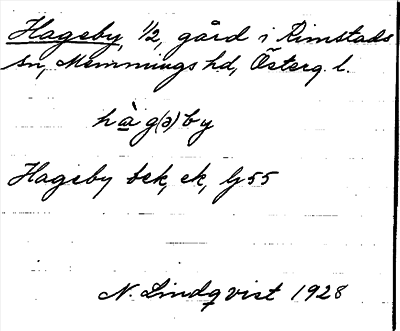 Hageby, 1/2, gård i Rimstads
sn, Memmings hd, Österg. l.
hàg(ə)by
Hageby bek, ek, Ij 55
N. Lindqvist 1928